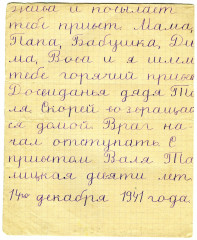 жива и посылает
тебе привет. Мама,
Папа, Бабушка, Ди
ма, Вова и я шлем
тебе горячий привет
Досвиданья дядя То
ля. Скорей возвращай
ся домой Враг на-
чал отступать. С
приветом Валя
мицкая девяти лет.
14го декабря 1941 года.